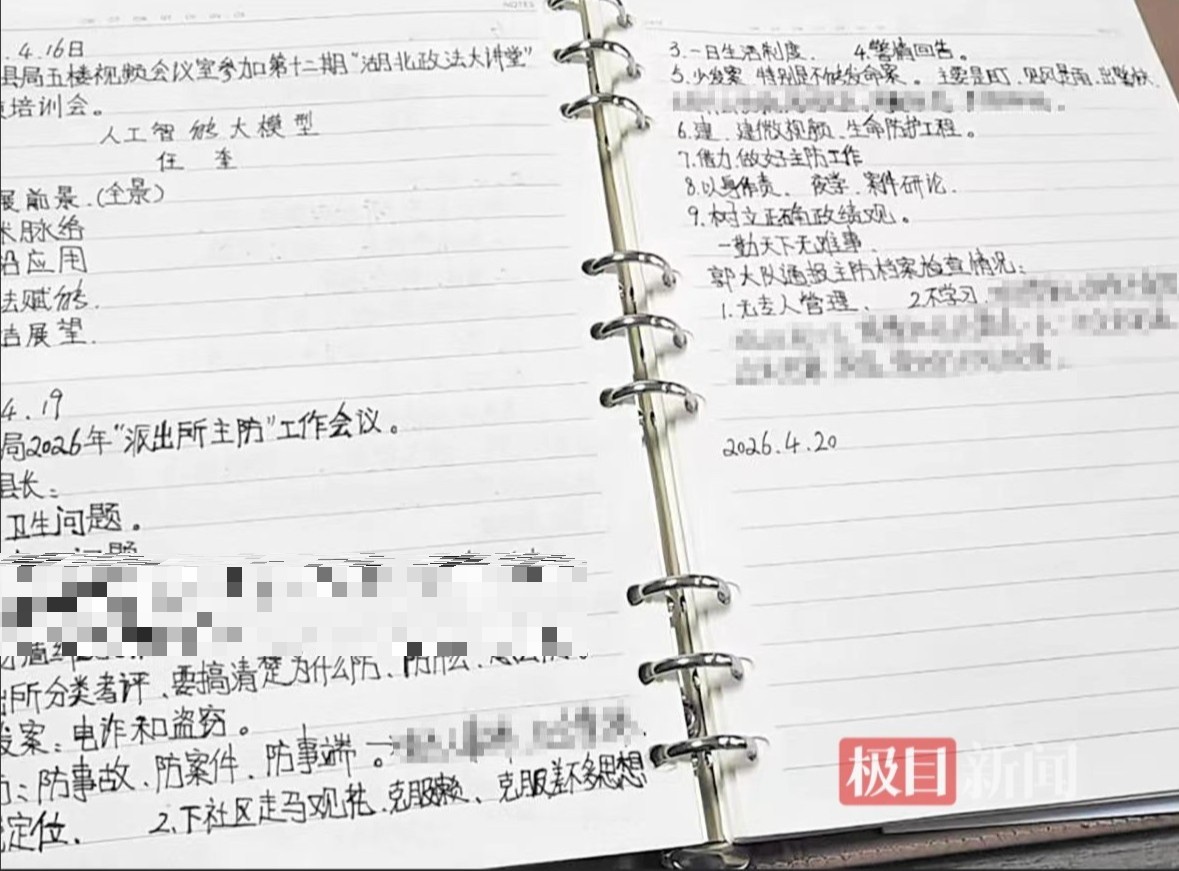 NOTES
.4.16日
县局五楼视频会议室参加第十二期“湖北政法大讲堂”
培训会。
人工智能大模型
任 奎
展前景.(全景)
术脉络
沿应用
法赋能.
结展望.
4.19
局2026年“派出所主防”工作会议。
县长:
卫生问题。
问题
出所分类考评、要搞清楚为什么防、防什么、
发案:电诈和盗窃。
防事故、防案件、防事端一
定位. 2.下社区走马观花、克服懒、克服差不多思想
3.一日生活制度. 4.警情回告。
5.少发案 特别是不能发命案。主要是盯、见风是雨、出警快.
6.建、建微视频、生命防护工程。
7.借力做好主防工作
8.以身作责、夜学、案件研论.
9.树立正确政绩观。
一勤天下无难事.
郭大队通报主防档案检查情况:
1.无专人管理、 2.不学习.
2026.4.20
极目新闻